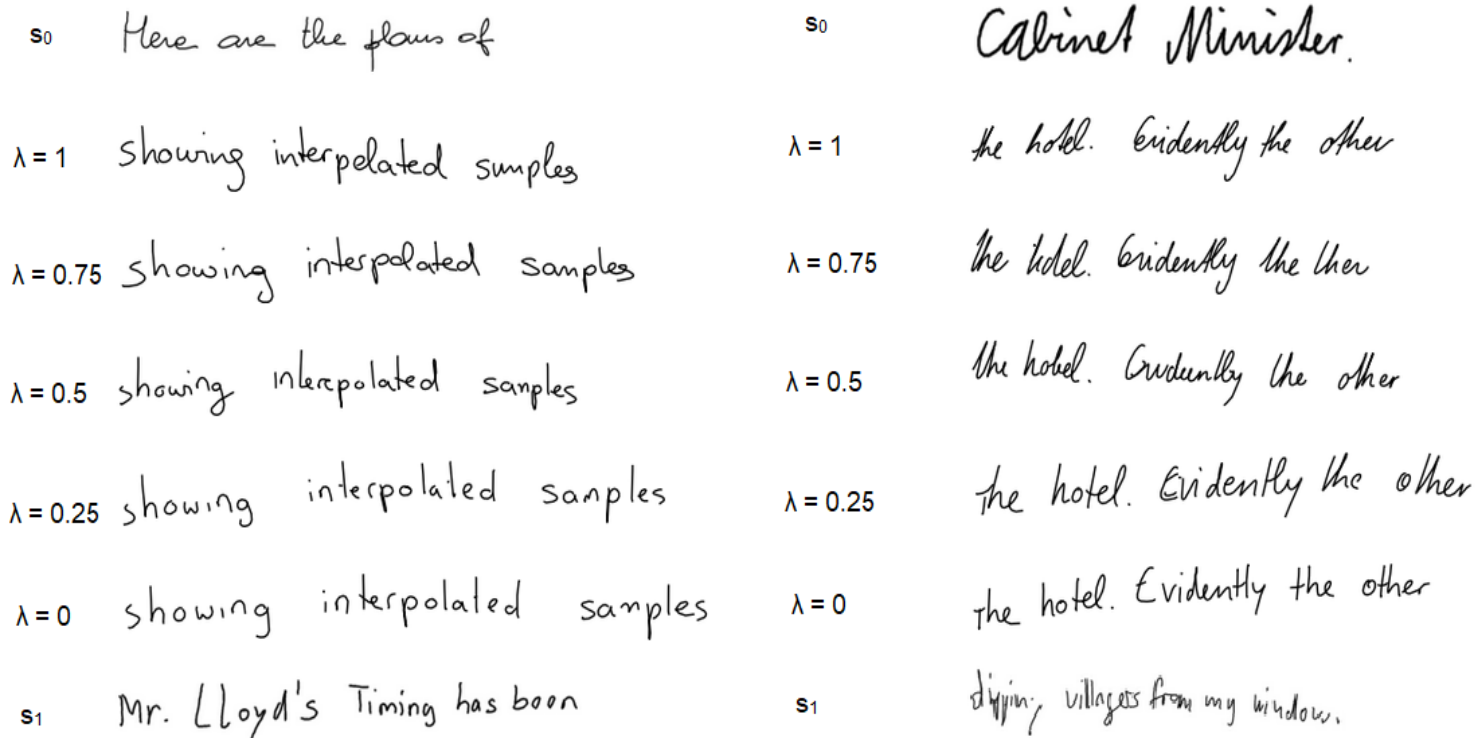 s0 Here are the plans of
λ = 1 showing interpelated sumples
λ = 0.75 showing interpolated samples
λ = 0.5 showing interpolated sanples
λ = 0.25 showing interpolated samples
λ = 0 showing interpolated samples
s1 Mr. Lloyd's Timing has boon
s0 Cabinet Minister.
λ = 1 the hotel. Evidently the other
λ = 0.75 the hdel. Evidently the ther
λ = 0.5 the hobel. the other
λ = 0.25 the hotel. Evidently the other
λ = 0 the hotel. Evidently the other
s1 villagers from my window.